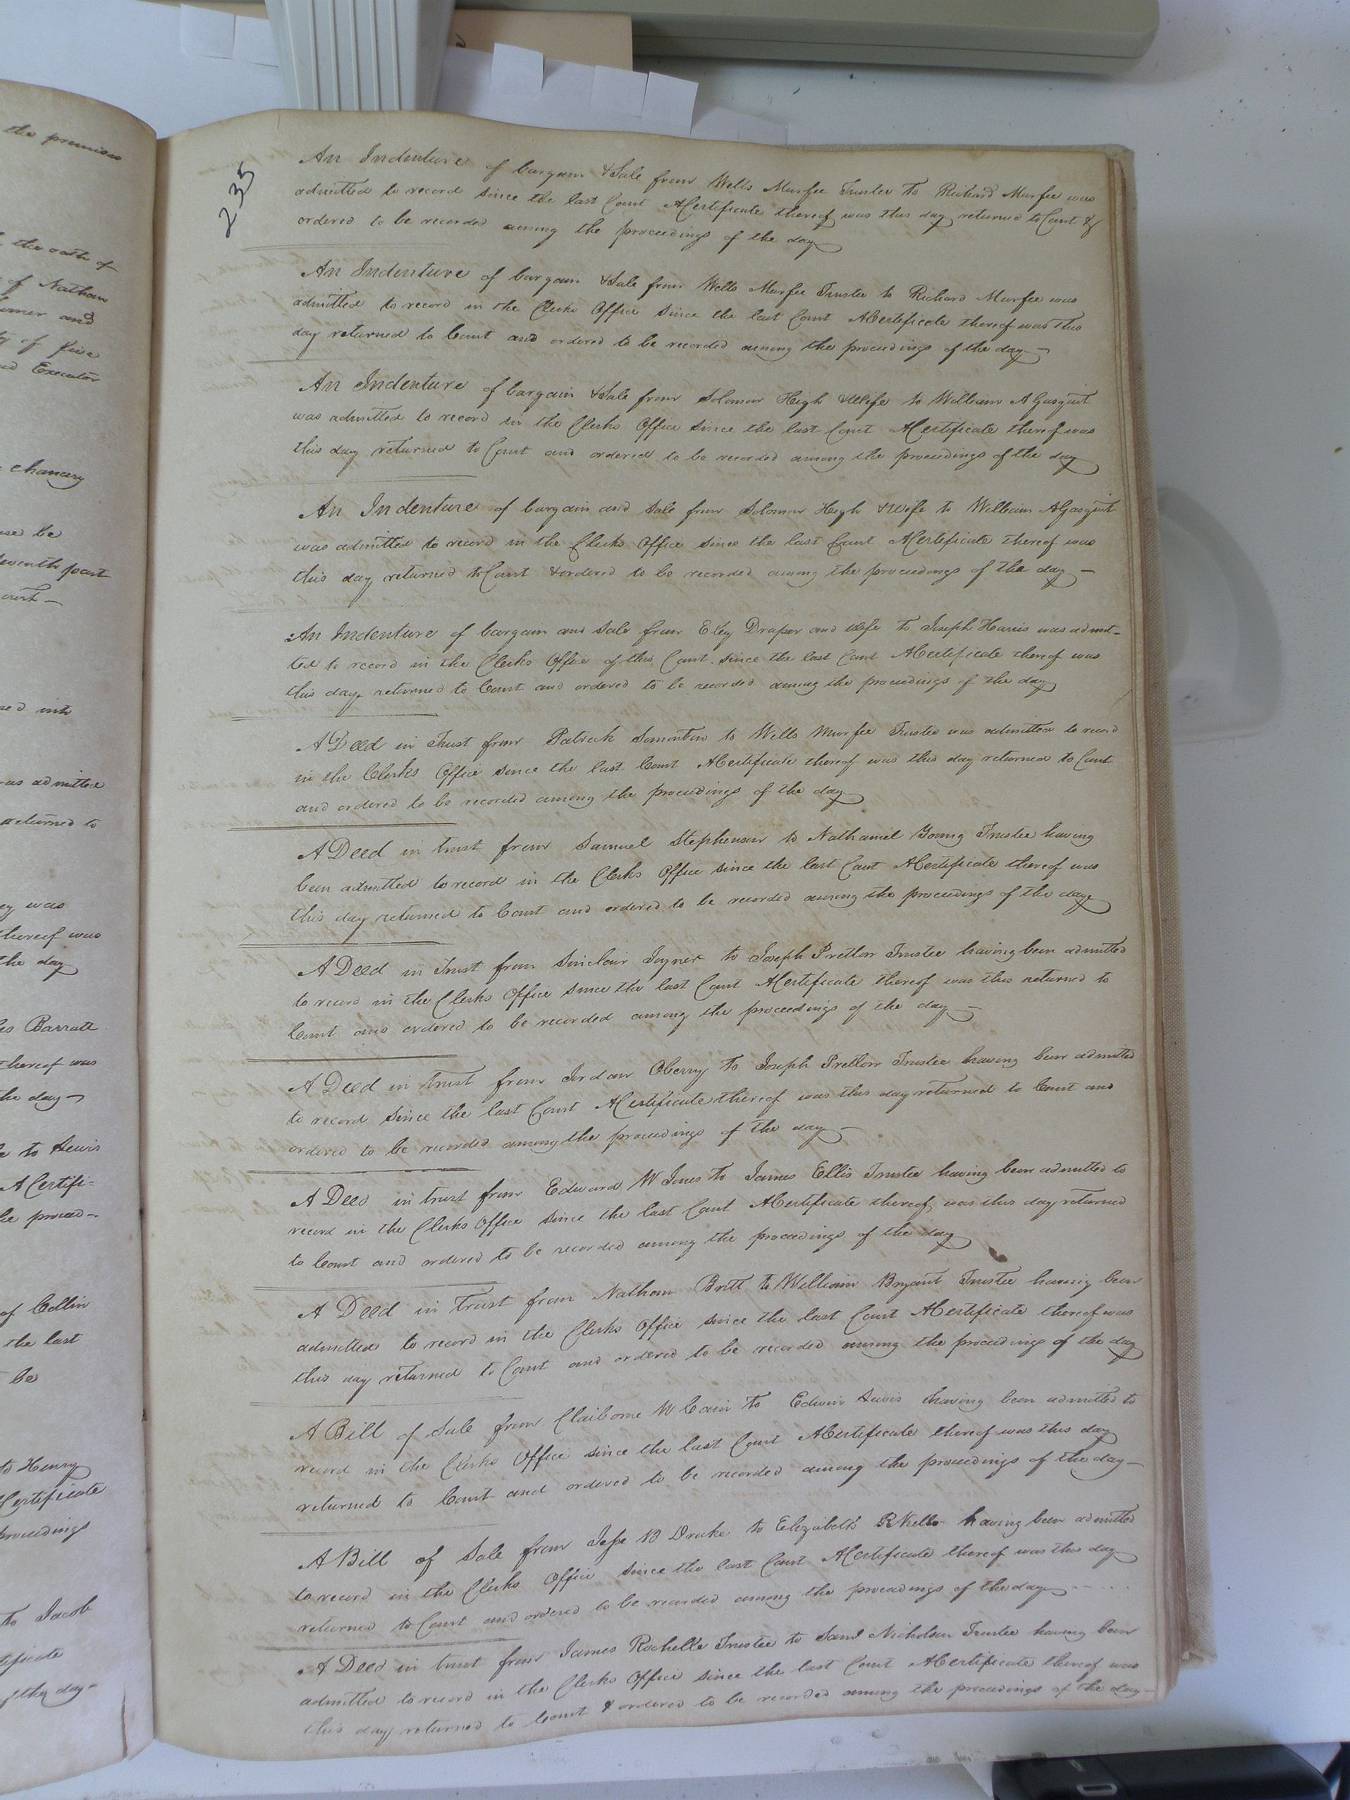 the premises
the oath of
of Nathan
and
of five
Executor
chancery
be
seventh part
Court —
into
was admitted
returned to
was
thereof was
the day
Barratt
thereof was
the day —
to Lewis
A Certifi-
the proceed-
of Collin
the last
be
to Henry
Certificate
proceedings
to Jacob
of the day —
235
An Indenture of bargain & Sale from Wells Murfee Trustee to Richard Murfee was
admitted to record since the last Court A Certificate thereof was this day returned to Court &
ordered to be recorded among the proceedings of the day
An Indenture of bargain & Sale from Wells Murfee Trustee to Richard Murfee was
admitted to record in the Clerks Office since the last Court A Certificate thereof was this
day returned to Court and ordered to be recorded among the proceedings of the day —
An Indenture of bargain & Sale from Solomon High & Wife to William A Gasquit
was admitted to record in the Clerks Office since the last Court A Certificate thereof was
this day returned to Court and ordered to be recorded among the proceedings of the day
An Indenture of bargain and Sale from Solomon High & Wife to William A Gasquit
was admitted to record in the Clerks Office since the last Court A Certificate thereof was
this day returned to Court & ordered to be recorded among the proceedings of the day —
An Indenture of bargain and Sale from Eley Draper and Wife to Joseph Harris was admit-
ted to record in the Clerks Office of this Court since the last Court A Certificate thereof was
this day returned to Court and ordered to be recorded among the proceedings of the day
A Deed in Trust from Patrick Simonton to Wells Murfee Trustee was admitted to record
in the Clerks Office since the last Court A Certificate thereof was this day returned to Court
and ordered to be recorded among the proceedings of the day
A Deed in trust from Samuel Stephenson to Nathaniel Young Trustee having
been admitted to record in the Clerks Office since the last Court A Certificate thereof was
this day returned to Court and ordered to be recorded among the proceedings of the day
A Deed in Trust from Sinclair Joyner to Joseph Pretlow Trustee having been admitted
to record in the Clerks Office since the last Court A Certificate thereof was this returned to
Court and ordered to be recorded among the proceedings of the day —
A Deed in trust from Jordan Oberry to Joseph Pretlow Trustee having been admitted
to record since the last Court A Certificate thereof was this day returned to Court and
ordered to be recorded among the proceedings of the day —
A Deed in trust from Edward W Jones to James Ellis Trustee having been admitted to
record in the Clerks Office since the last Court A Certificate thereof was this day returned
to Court and ordered to be recorded among the proceedings of the day
A Deed in trust from Nathan Britt to William Bryant Trustee having been
admitted to record in the Clerks Office since the last Court A Certificate thereof was
this day returned to Court and ordered to be recorded among the proceedings of the day
A Bill of Sale from Claiborne W Cain to Edwin Lewis having been admitted to
record in the Clerks Office since the last Court A Certificate thereof was this day
returned to Court and ordered to be recorded among the proceedings of the day —
A Bill of Sale from Jesse B Drake to Elizabeth R Kello having been admitted
to record in the Clerks Office since the last Court A Certificate thereof was this day
returned to Court and ordered to be recorded among the proceedings of the day
A Deed in trust from James Rochelle Trustee to Saml Nicholson Trustee having been
admitted to record in the Clerks Office since the last Court A Certificate thereof was
this day returned to Court & ordered to be recorded among the proceedings of the day —